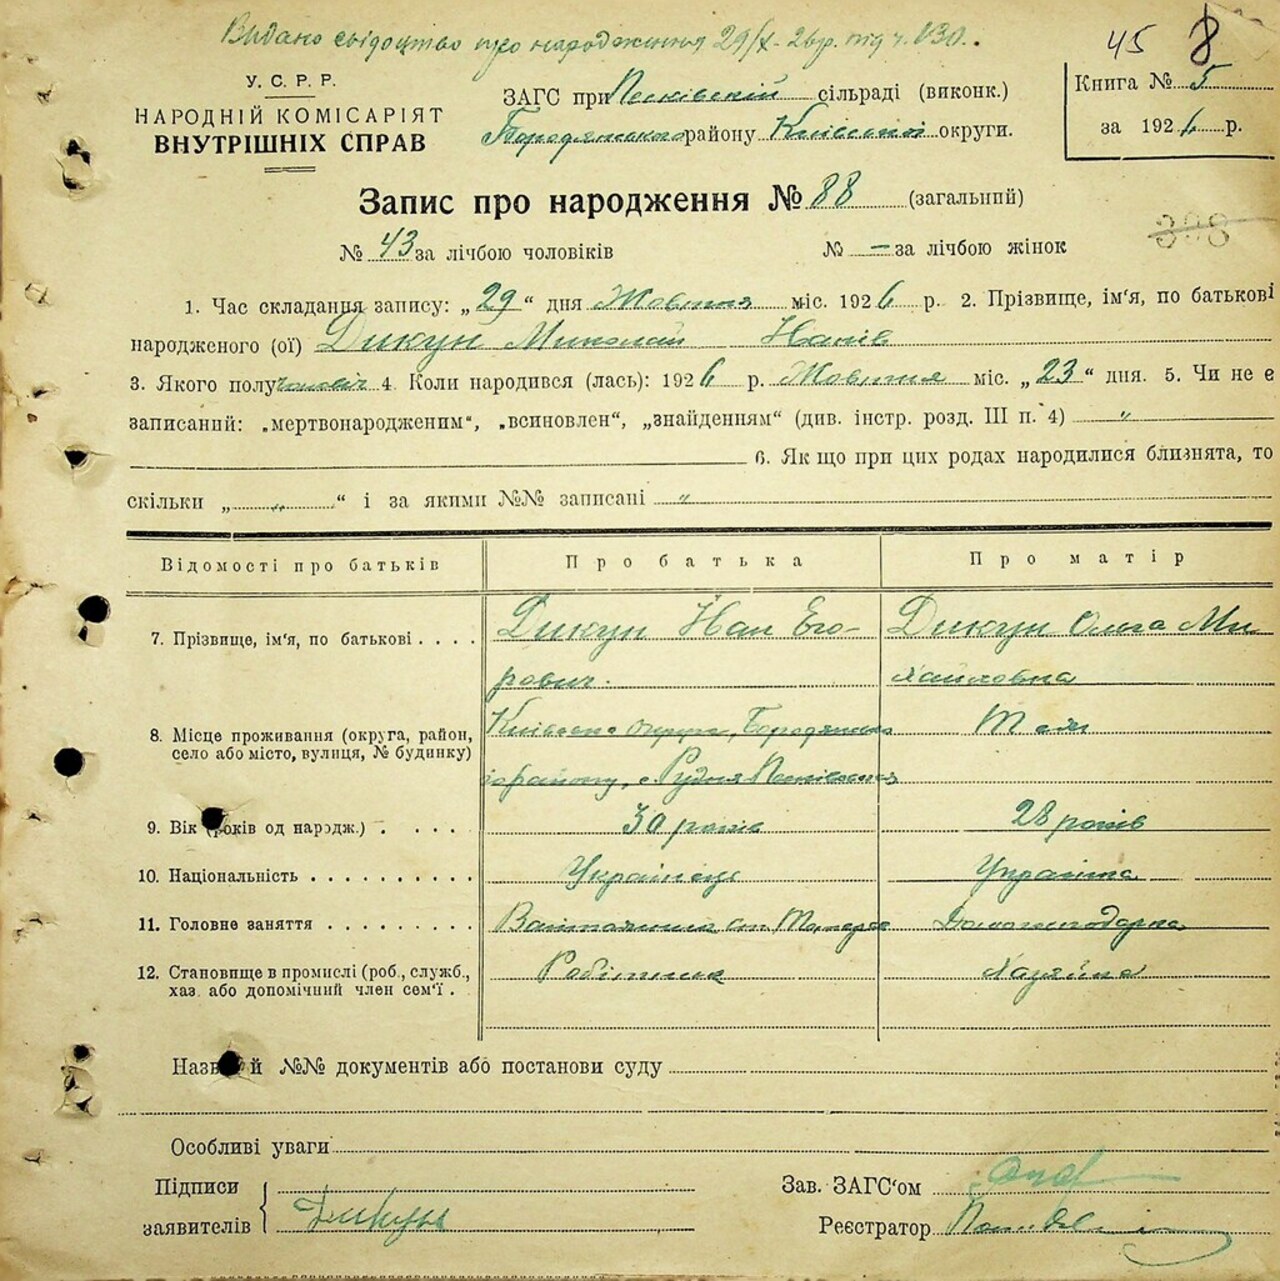 Видано свідоцтво про народження 29/X-26 р. під ч. 130.
45 8
У. С. Р. Р.
НАРОДНІЙ КОМІСАРІЯТ
ВНУТРІШНІХ СПРАВ
ЗАГС при Песківській сільраді (виконк.)
Бородянського району Київської округи.
Книга № 5
за 1926 р.
Запис про народження № 88 (загальний)
№ 43 за лічбою чоловіків № — за лічбою жінок
398
1. Час складання запису: „29“ дня Жовтня міс. 1926 р. 2. Прізвище, ім'я, по батькові
народженого (ої) Дикун Миколай
3. Якого полу чоловіч 4. Коли народився (лась): 1926 р. Жовтня міс. „23“ дня. 5. Чи не є
записаний: „мертвонародженим“, „всиновлен“, „знайденням“ (див. інстр. розд. III п. 4) „
6. Якщо при цих родах народилися близнята, то
скільки „ „ “ і за якими №№ записані „
Відомості про батьків Про батька Про матір
7. Прізвище, ім'я, по батькові . . . . Дикун Иван Его- Дикун Ольга Ми
рович. хайловна
8. Місце проживання (округа, район, село або місто, вулиця, № будинку) Київська округа, Бородянсько Там
го району, с. Рудня Песківська
9. Вік (років од народж.) . . . . . 30 років 28 років
10. Національність . . . . . . . . . . Українець Українка
11. Головне заняття . . . . . . . . . ст. Тетерев Домогосподарка
12. Становище в промислі (роб., служб., хаз. або допомічний член сем'ї . Робітник Хазяйка
Назви й №№ документів або постанови суду
Особливі уваги
Підписи
заявителів Дикун
Зав. ЗАГС'ом
Реєстратор